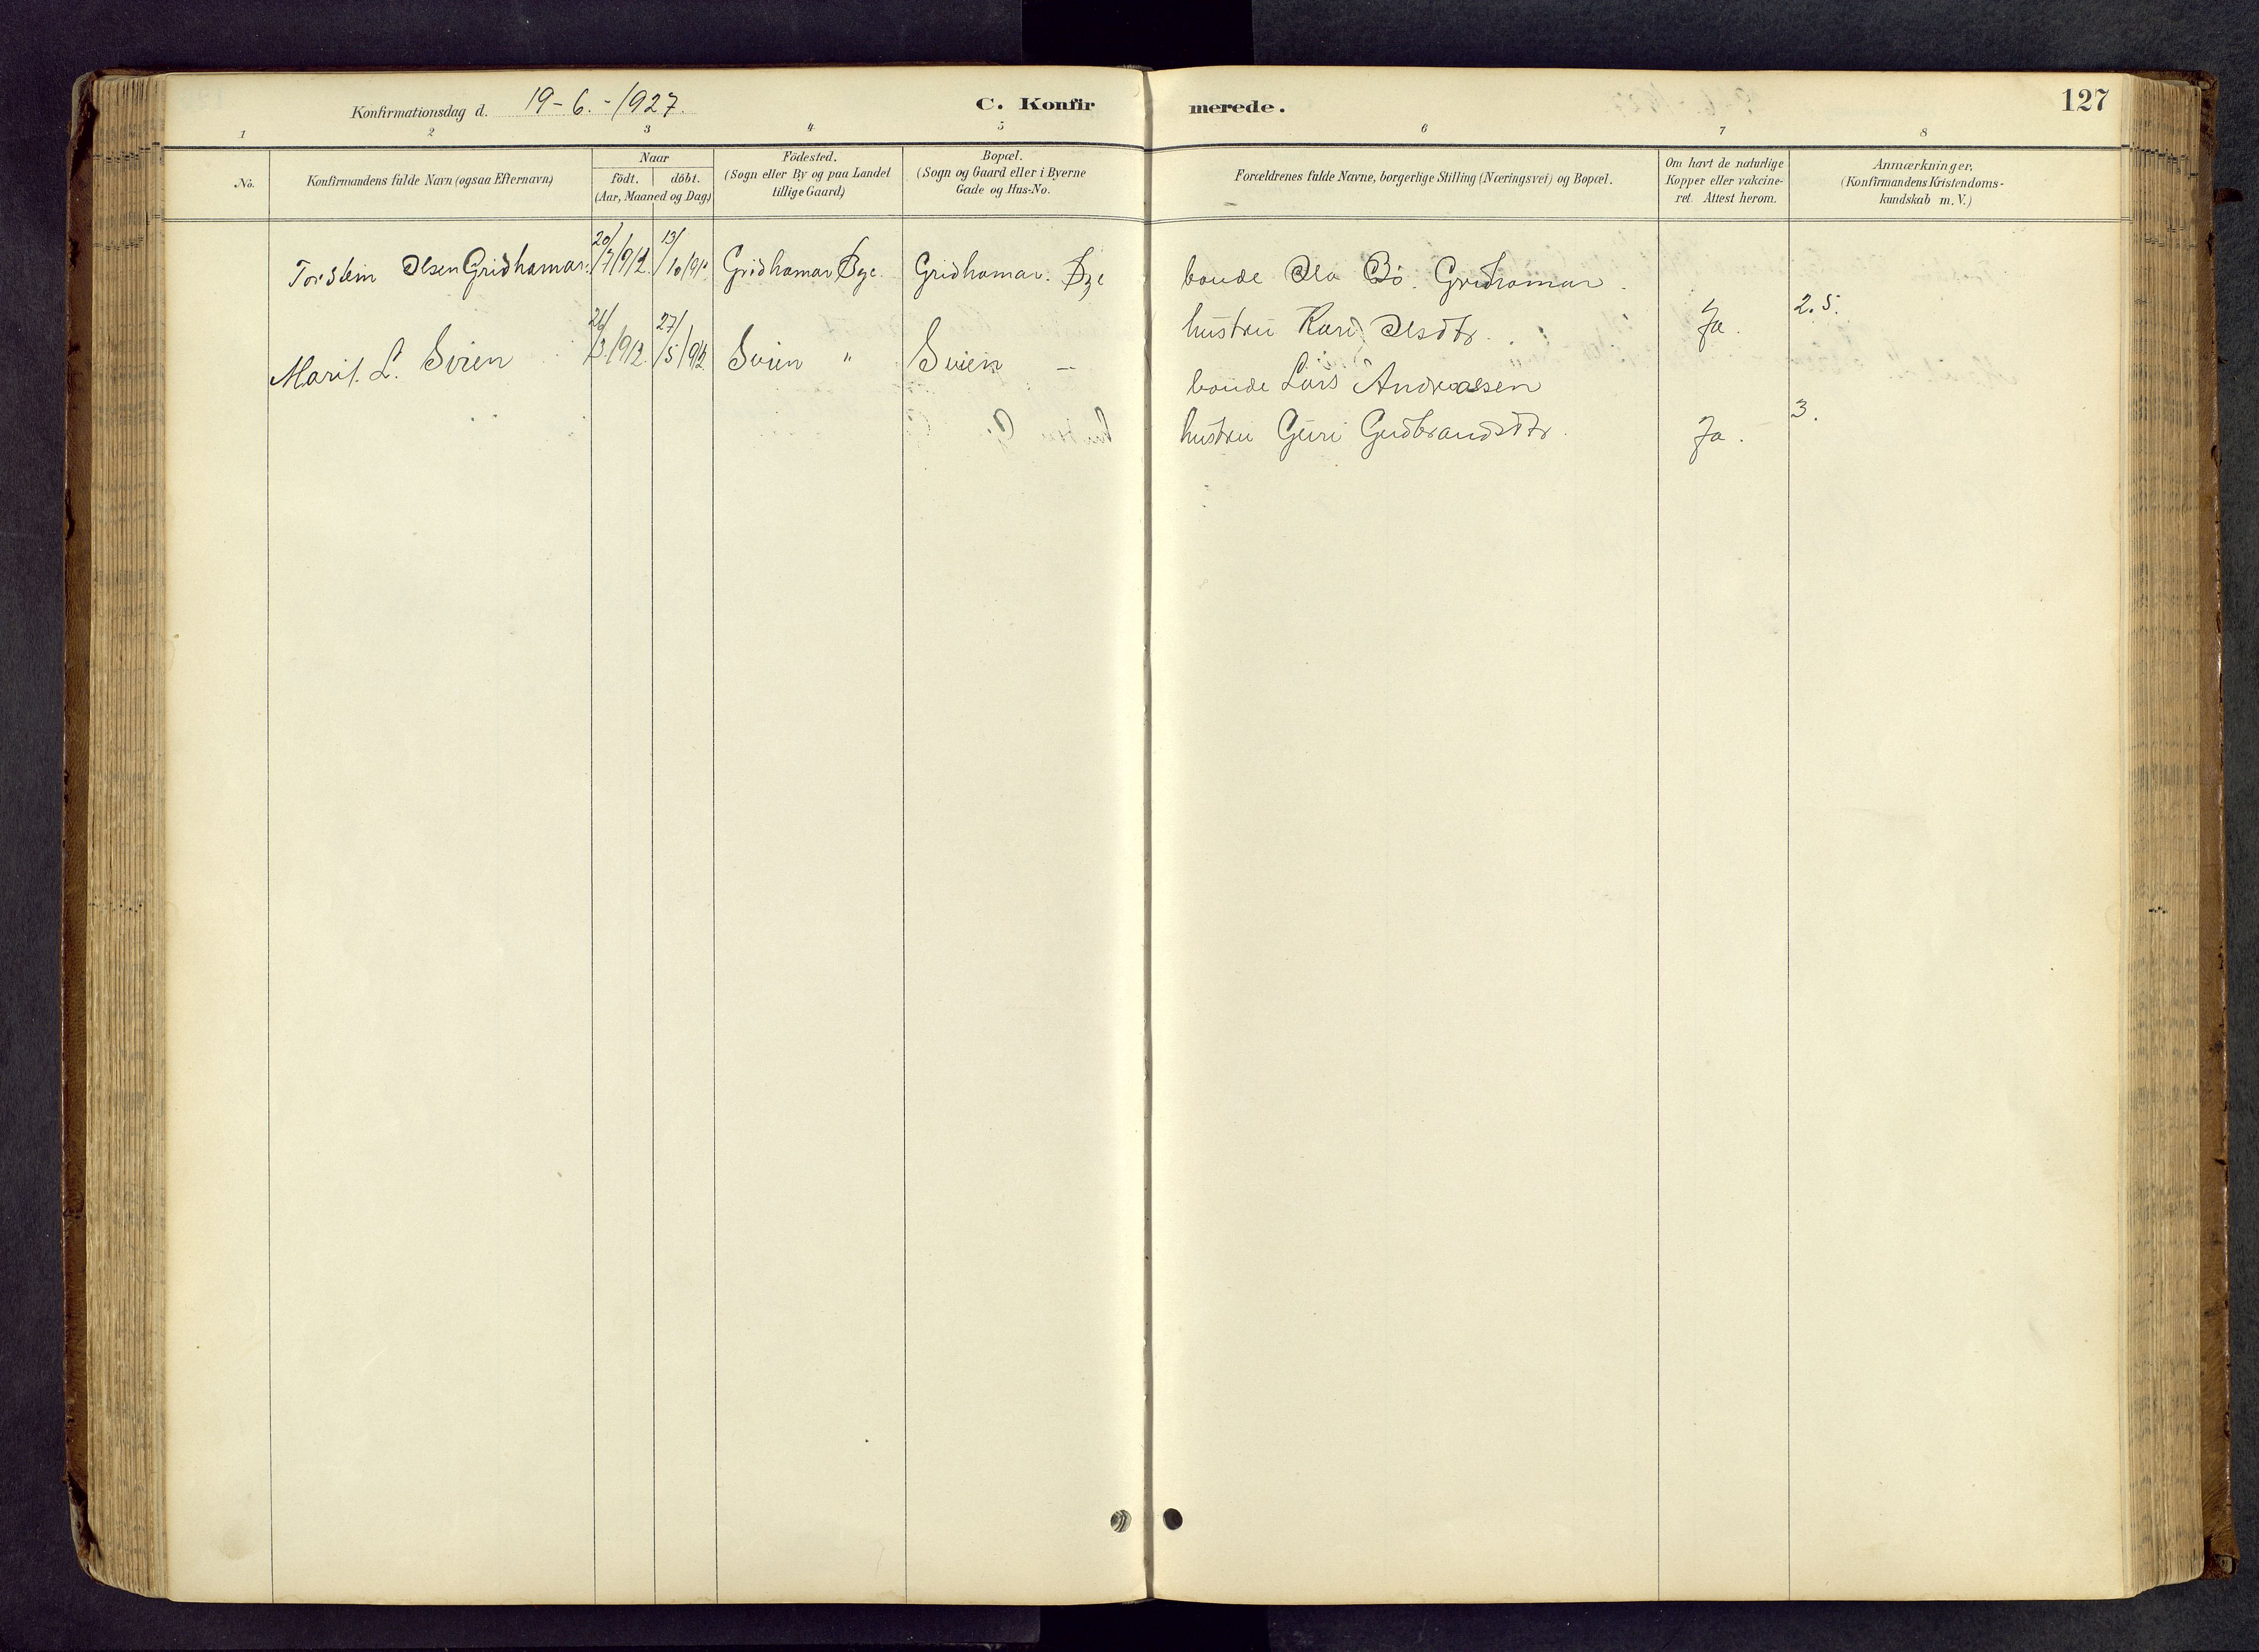 Konfirmationsdag d. 19-6.-1927.
C. Konfirmerede.
127
1 2 3 4 5 6 7 8
No.
Konfirmandens fulde Navn (ogsaa Efternavn)
Naar
födt. döbt.
(Aar, Maaned og Dag)
Födested.
(Sogn eller By og paa Landet
tillige Gaard)
Bopæl.
(Sogn og Gaard eller i Byerne
Gade og Hus-No.
Forældrenes fulde Navne, borgerlige Stilling (Næringsvei) og Bopæl.
Om havt de naturlige
Kopper eller vakcine-
ret. Attest herom.
Anmærkninger.
(Konfirmandens Kristendoms-
kundskab m.V.)
Torstein Olsen Gridhamar. 20/7 1912. 13/10 Gridhamar Øye. Gridhamar. Øye
bonde Ola Bö. Gridhamar.
hustru Kari Olsdtr. Ja. 2.5.
Marit. L. Svien 26/3 1912. 27/5 Svien " Svien –
bonde Lars Andreasen
hustru Guri Gudbrandsdtr. Ja. 3.